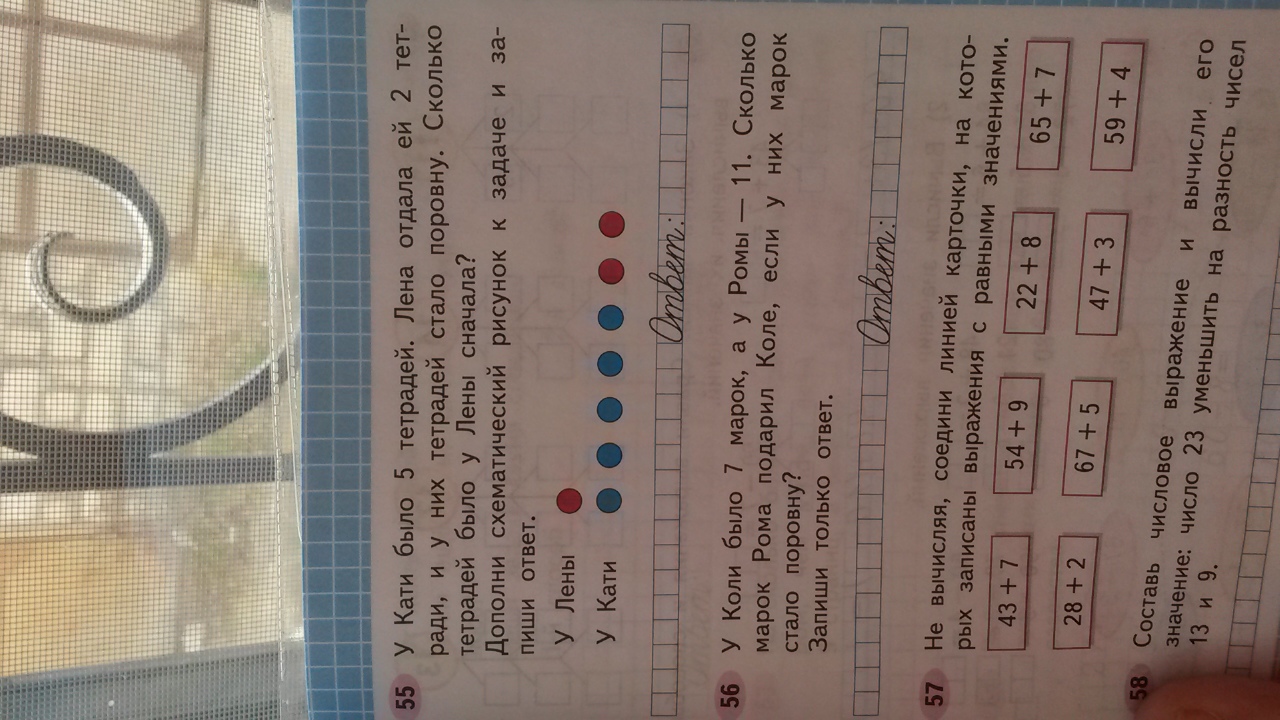 55 У Кати было 5 тетрадей. Лена отдала ей 2 тет-
ради, и у них тетрадей стало поровну. Сколько
тетрадей было у Лены сначала?
Дополни схематический рисунок к задаче и за-
пиши ответ.
У Лены
У Кати
Ответ:
56 У Коли было 7 марок, а у Ромы — 11. Сколько
марок Рома подарил Коле, если у них марок
стало поровну?
Запиши только ответ.
Ответ:
57 Не вычисляя, соедини линией карточки, на кото-
рых записаны выражения с равными значениями.
43 + 7 54 + 9 22 + 8 65 + 7
28 + 2 67 + 5 47 + 3 59 + 4
58 Составь числовое выражение и вычисли его
значение: число 23 уменьшить на разность чисел
13 и 9.